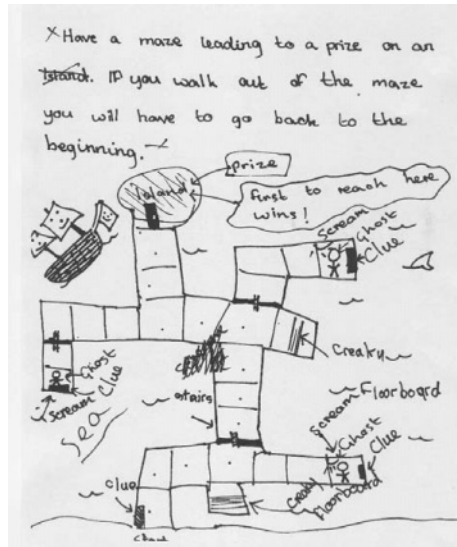 x Have a maze leading to a prize on an
Island. If you walk out of the maze
you will have to go back to the
beginning. x
prize
island
first to reach here
wins!
Scream
Ghost
Clue
Creaky
Floorboard
Ghost
Clue
Scream
Sea
stairs
Scream
Ghost
Clue
Creaky
Floorboard
Clue